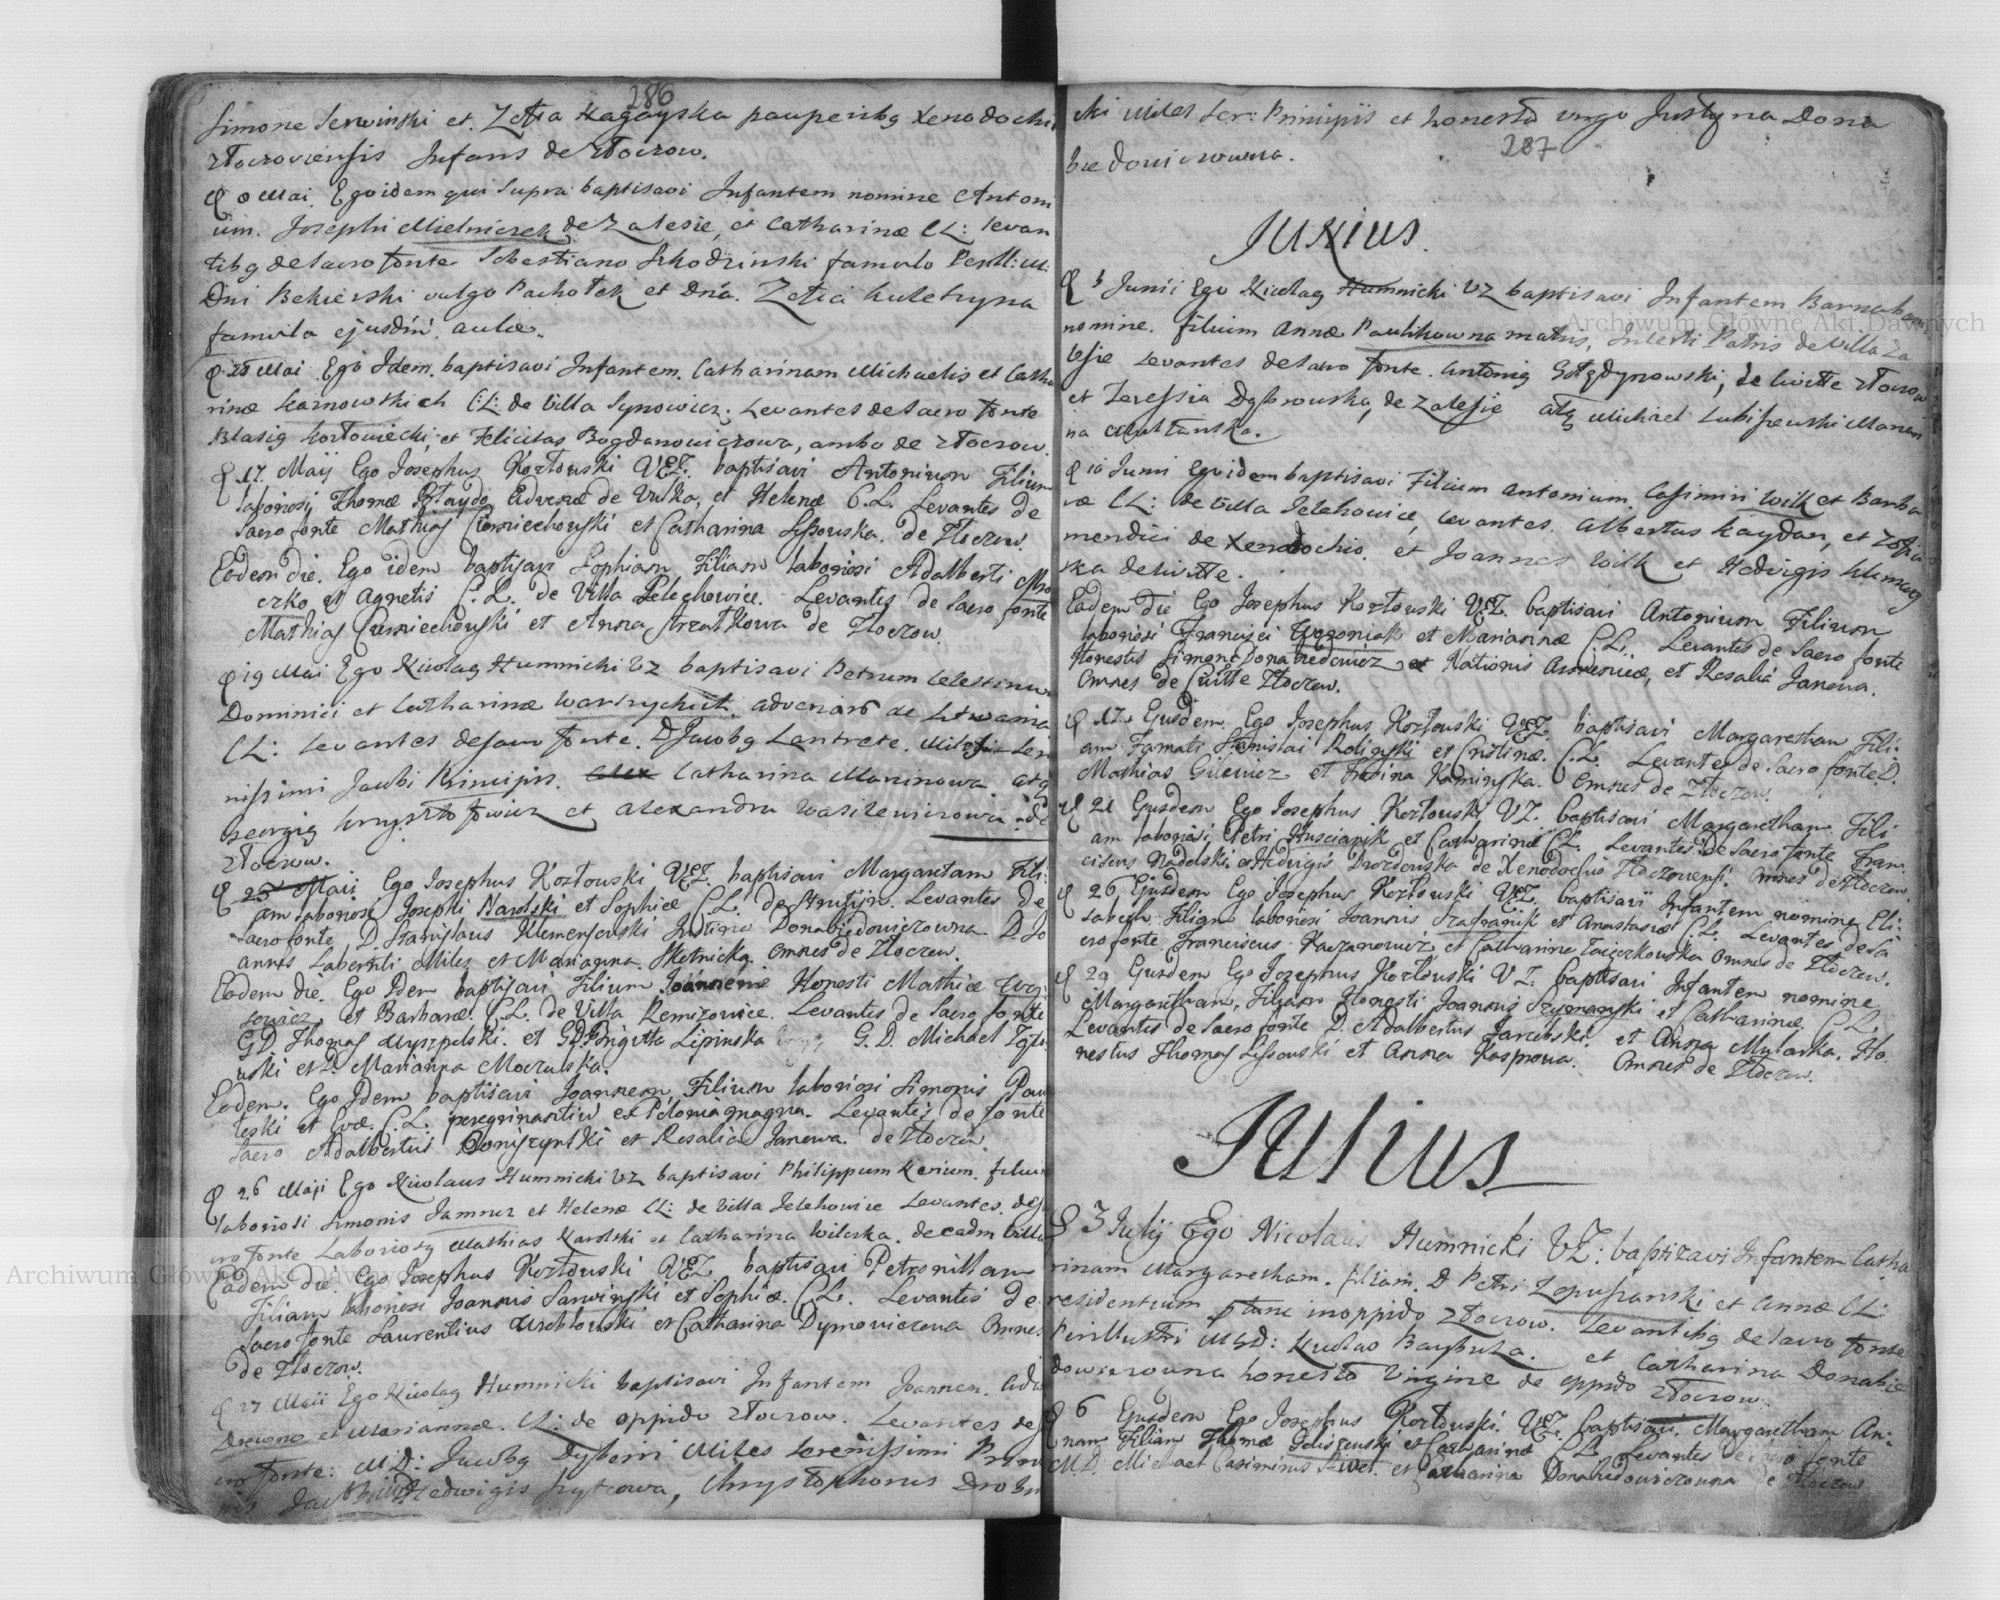 286
Simone Serwinski et Zofia Hagayska pauperibg Xenodochi
złoczoviensis Infans de złoczow.
8 Mai. Ego idem qui Supra baptisavi Infantem nomine Antoni
um. Josephi Mielniczek de Zalesie, et Catharinæ CL: levan
tibg de Sacro fonte Sebastiano famulo
Dni Bekierski vulgo Pachołek et Dna. Zofia
famula ejusdm aulæ.
Mai Ego Idem baptisavi Infantem Catharinam Michaelis et Catha
rinæ Karnowskich CL: de Villa Synowicz. Levantes de Sacro fonte
Blasig Kozłowiecki et Felicitas Bogdanowiczowa, ambo de złoczow.
17. Maij Ego Josephus Kozłouski VEZ. baptisavi Antonium Filium
laboriosi Thomæ advenæ de Vulka, et Helenæ C.L. Levantes de
Sacro fonte Mathias Ciemiechouski et Catharina Lissouska. de Złoczow.
Eodem die. Ego idem baptisavi Sophiam Filiam laboriosi Adalberti Mro
czko et Agnetis C.L. de Villa Pelechowice. Levantes de Sacro fonte
Mathias Ciemiechouski et Anna Strzałkowa de Złoczow.
19 Mai Ego Nicolag Humnicki VZ baptisavi Petrum Celestinum
Dominici et Catharinæ advenarō de
CL: Levantes de Sacro fonte. D Jacobg Lentrete. Miles Sere
nissimi Jacobi Principis. Catharina Maninowa. atq
Georgig Krysztofowicz et Alexandra Wasilewiczowa de
złoczow.
23 Maij Ego Josephus Kozłouski VEZ. baptisavi Margaretam Fili
am laboriosi Josephi Narolski et Sophiæ C.L. de Levantes de
Sacro fonte D. Stanislaus Klemensouski Justina Donabiedowiczowna D. Jo
annes Miles et Marianna Skotnicka. Omnes de Złoczow.
Eodem die. Ego Idem baptisavi Filium Joannem Honesti Mathiæ
et Barbaræ. C.L. de Villa Remizowice. Levantes de Sacro fonte
G.D. Thomas Myszpolski. et G.D. Brigitta Lipinska G.D. Michael
uski et D. Marianna Moczulska.
Eodem. Ego Idem baptisavi Joannem, Filium laboriosi Simonis Paw
leski et Evæ. C.L. peregrinantiū ex Polonia magna. Levantes de fonte
Sacro Adalbertus et Rosalia Janowa de Złoczow.
26 Maji Ego Nicolaus Humnicki VZ baptisavi Philippum Nerium. filium
laboriosi Simonis Jamroz et Helenæ CL: de Villa Jelehowice Levantes. de Sa
cro fonte Laboriosg Mathias Karolski et Catharina Wilczka. de eadm villa
Eadem die. Ego Josephus Kozłouski VEZ. baptisavi Petronillam
Filiam laboriosi Joannis Sarwinski et Sophiæ. C.L. Levantes de
Sacro fonte Laurentius et Catharina Dymowiczowa Omnes
de Złoczow.
27 Maii Ego Nicolag Humnicki baptisavi Infantem Joannem.
et Mariannæ. CL: de oppido złoczow. Levantes de Sa
cro fonte: MD: Jacobg Miles Serenissimi Princi
pis Jacobi Hedwigis Chrystophorus
cki Miles Ser: Principis et honesta virgo Justyna Dona
biedowiczowna.
287
Junius.
Junii Ego Nicolag Humnicki VZ baptisavi Infantem Barnabam
nomine. filium Annæ Paulikowna matris, Incerti Patris de Villa Za
lesie Levantes de Sacro fonte. Antonig de civitte złoczow
et Teressia Dąbrowska, de Zalesie atq Michael Lubiszewski Marian
na
10 Junii Ego idem baptisavi Filium Antonium Casimiri Wilk et Barba
ræ CL: de Villa Jelehowice, Levantes. Albertus Kaydan, et Zofia
mendici de Xenodochio. et Joannes Wilk et Hedvigis
ska de civitte.
Eadem die Ego Josephus Kozłouski VEZ. baptisavi Antonium Filium
laboriosi Francisci Woroniak et Mariannæ C.L. Levantes de Sacro fonte
Honestus Simone Donabiedowicz Nationis Armenicæ, et Rosalia Janowa.
Omnes de Civitte Złoczow.
17. Ejusdem Ego Josephus Kozłouski VEZ. baptisavi Margaretham Fili
am Famati Stanislai et Cristinæ. C.L. Levantes de Sacro fonte D.
Mathias Gilewicz et Kaminska. Omnes de Złoczow.
21 Ejusdem Ego Josephus Kozłouski VZ. baptisavi Margaretham Fili
am laboriosi Petri et Catharinæ C.L. Levantes de Sacro fonte Fran
ciscus Nadolski et Hedvigis Drozdowska de Xenodochio Złoczoviensi. Omnes de Złoczow.
26 Ejusdem Ego Josephus Kozłouski VEZ. baptisavi Infantem nomine Eli
sabeth Filiam laboriosi Joannis Szafraniik et Anastasiæ C.L. Levantes de Sa
cro fonte Franciscus Kaczanowicz et Catharina Omnes de Złoczow.
29 Ejusdem Ego Josephus Kozłouski VZ. baptisavi Infantem nomine
Margaretham, Filiam Honesti Joannis Szymanski et Catharinæ. C.L.
Levantes de Sacro fonte D. Adalbertus Jarcebski et Anna Mularka. Ho
nestus Thomas Lissouski et Anna Kasprowa. Omnes de Złoczow.
Julius
3 Julij Ego Nicolaus Humnicki VZ: baptizavi Infantem Catha
rinam Margaretham. filiam. D Petri et Annæ CL:
residentium ptunc in oppido złoczow. Levantibg de Sacro fonte
Perillustri MGD: Nicolao Baybuza. et Catharina Donabie
dowiczowna honesta Virgine de oppido złoczow.
6 Ejusdem Ego Josephus Kozłouski. VEZ. baptisavi Margaretham An
nam Filiam Thomæ et Catharinæ C.L. Levantes de Sacro fonte
MD. Michael Casimirus et Catharina Donabiedowiczowna de Złoczow
Archiwum Główne Akt Dawnych
Archiwum Główne Akt Dawnych